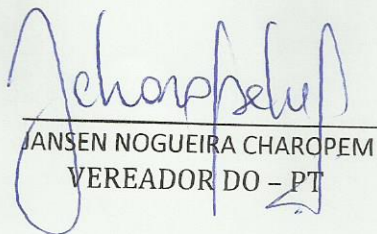 JANSEN NOGUEIRA CHAROPEM
VEREADOR DO – PT